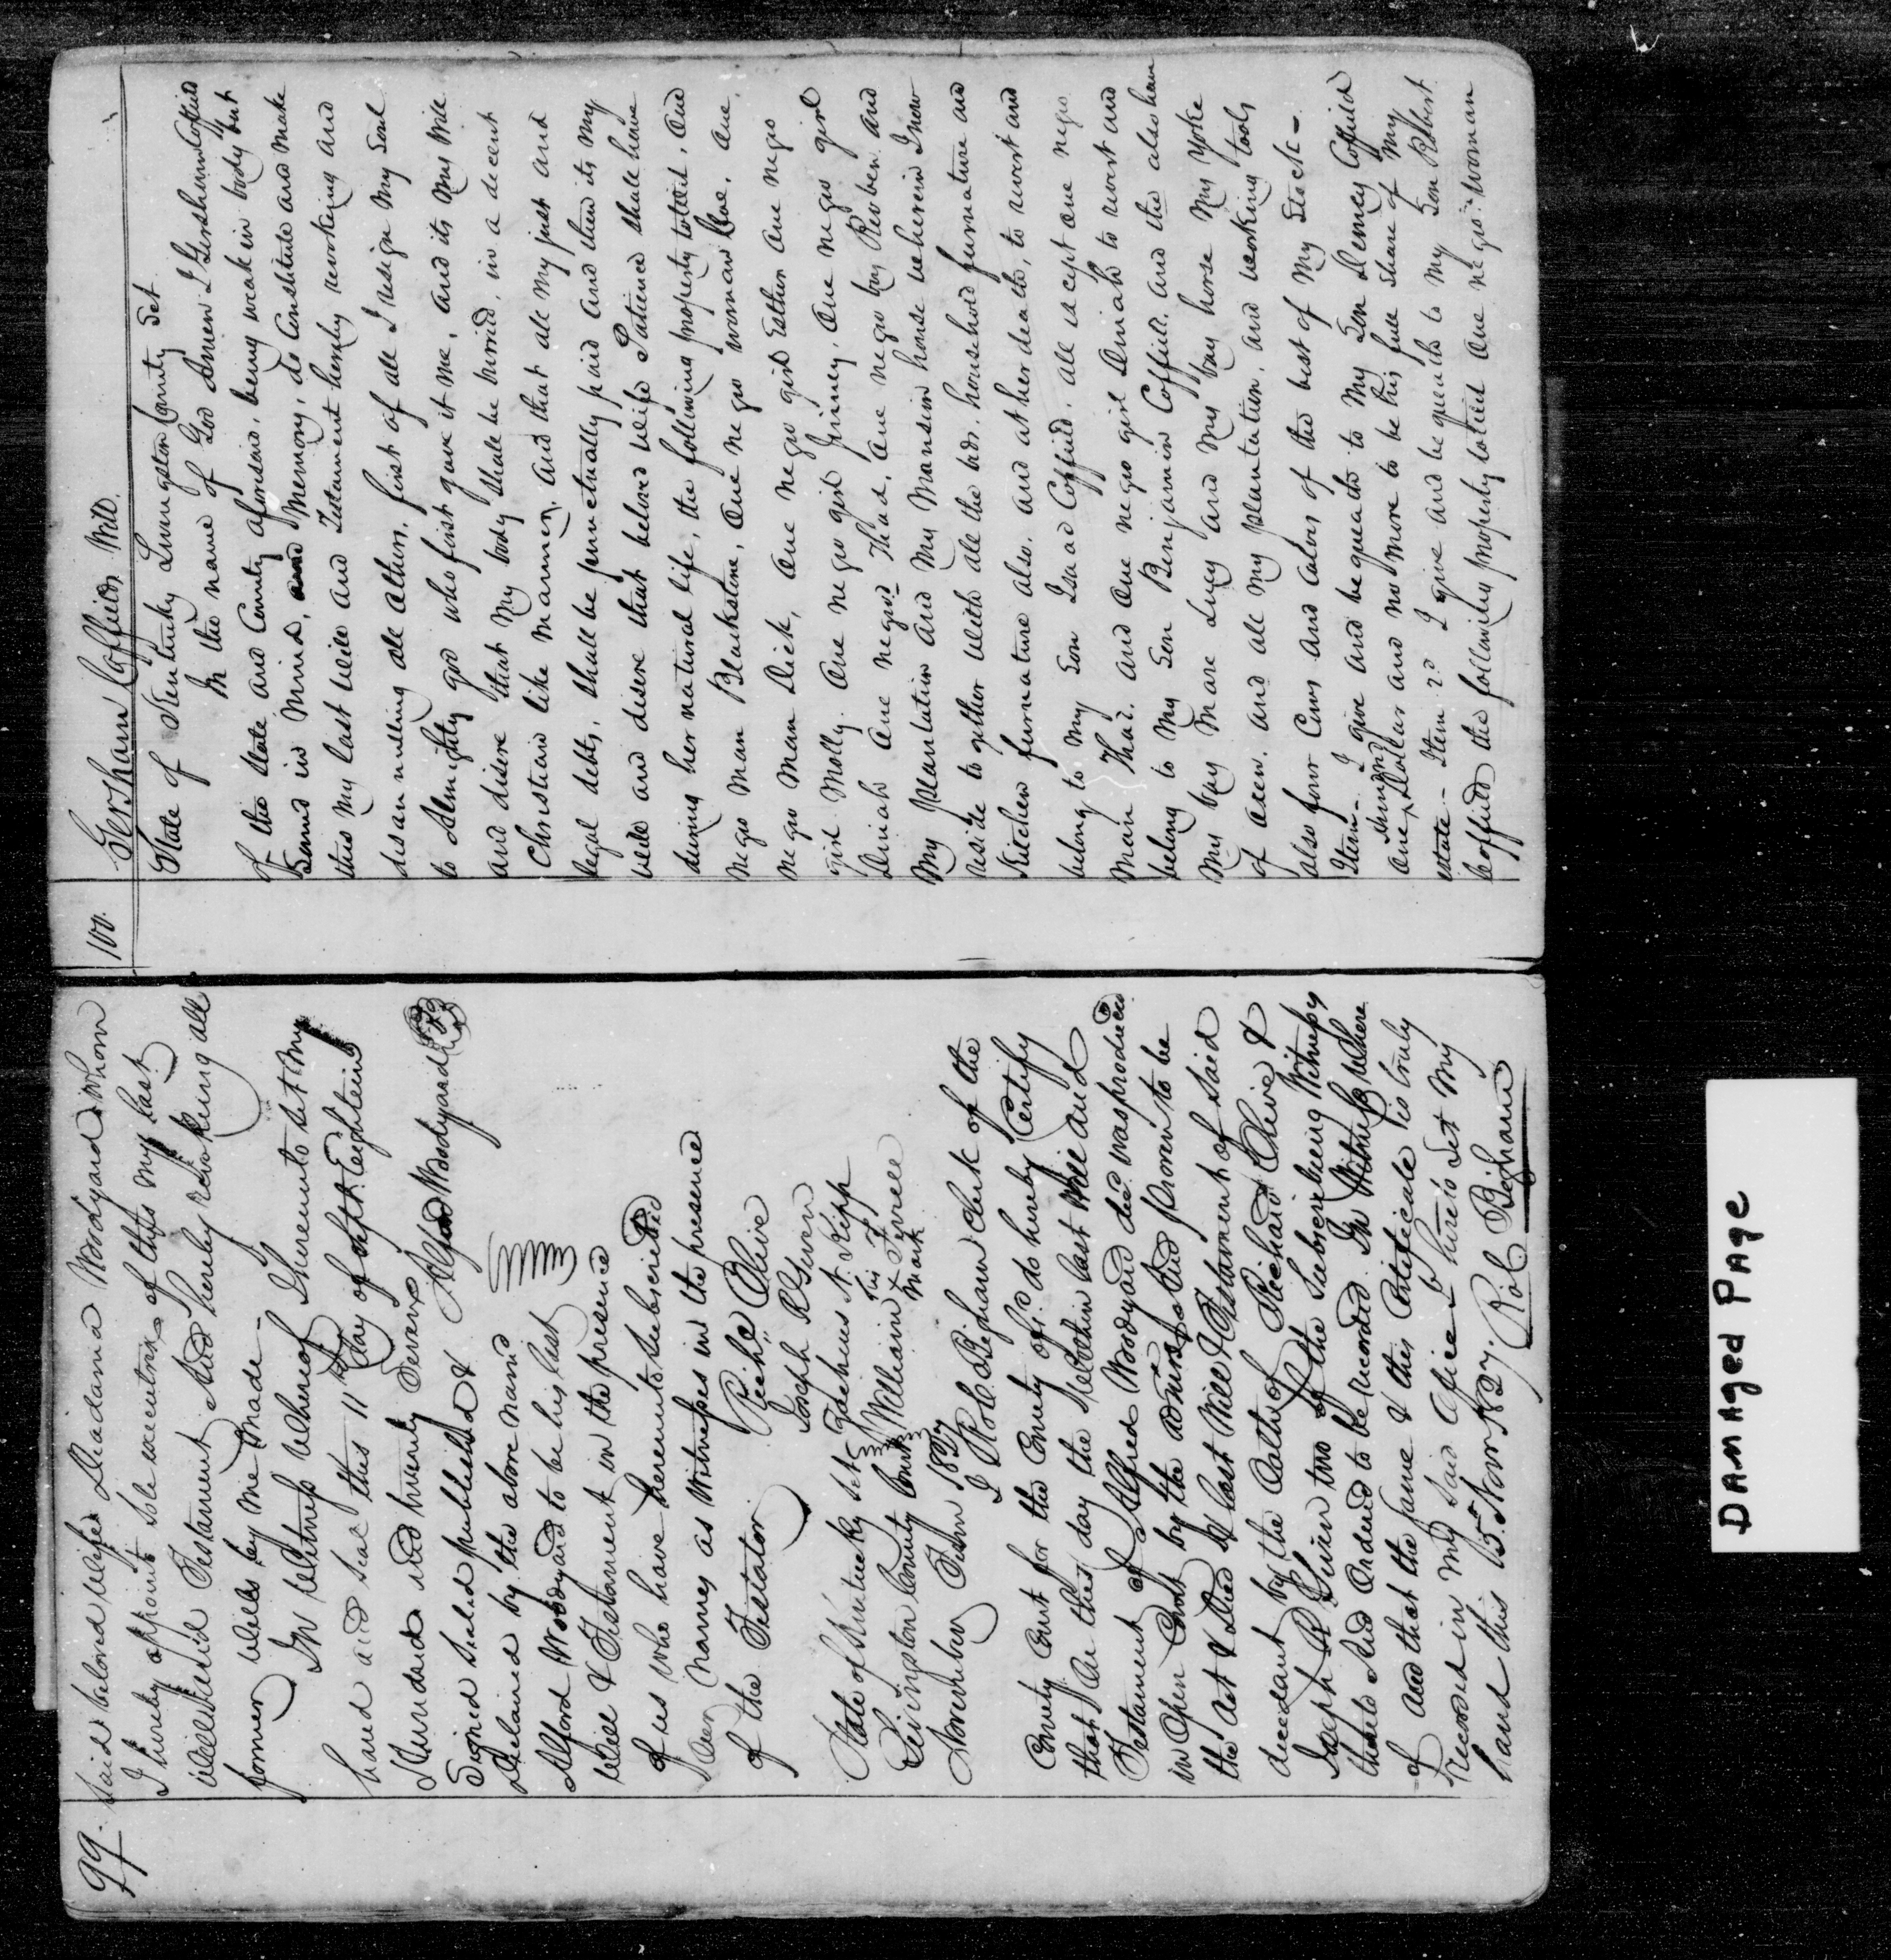 99.
Said beloved wife Diadama Woodyard whom
I hereby appoint sole executrix of this my last
will and Testament And hereby revoking all
former wills by me Made
In Witness Whereof I hereunto set my
hand and seal this 11th day of Sept. Eighteen
Hundred and twenty Seven
Alfred Woodyard
Signed Sealed published &
declared by the above named
Alford Woodyard to be his last
Will & Testament in the presence
of us who have hereunto Subscribed
our names as Witnesses in the presence
of the Testator.
Richd Olive
Joseph R Given
Zacheus A. Kipp
William his x mark Terrell
State of Kentucky sct
Livingston County Court
November Term 1827
I Rob. Bigham Clerk of the
County Court for the County afsd. do hereby Certify
that On this day the Within last Will and
Testament of Alfred Woodyard decd. was produced
in Open Court by the and proven to be
the act & deed & last Will & Testament of Said
decedant by the Oaths of Richard Olive &
Joseph R Given two of the Subscribing Witnesses
thereto And Ordered to be recorded. In Witness where
of And that the Same & this Certificate is truly
recorded in my Said Office I hereto Set My
hand this 15. Novr. 1827. Rob. Bigham
100.
Gersham Coffields Will.
State of Kentucky Livingston County Sct.
In the name of God Amen I Gersham Coffield
of the State and County aforesaid, being weak in body but
Sound in Mind, and Memory, do Constitute and Make
this My last Will and Testament hereby revoking and
disannulling all others, first of all I resign My Soul
to Almighty god who first gave it me, and its My Will
and disire that My body Shall be burried, in a decent
Christian like Manner, and that all My just and
legal debts, Shall be punctually paid and then its My
will and disire that beloved wife Patience Shall have
during her natural life, the following property to wit, One
Negro Man Blackstone, One Negro Woman Doe, One,
Negro Man Dick, One Negro girl Esther One Negro
girl Molly, One Negro girl Jinney, One Negro girl
Dinah One Negro Thad, One Negro boy Reuben, and
My plantation and My Mansion house wherein I now
reside to gether with all the beds, household furnature and
Kitchen furnature also, and at her death, to revert and
belong to My Son Isaac Coffield, all except One negro
Man Thad. and One Negro girl Dinah to revert and
belong to My Son Benjamin Coffield, and then also have
My bay Mare Lucy and My bay horse My Yoke
of Oxen, and all My plantation, and working tools
also four Cows and Calves of the best of My Stock -
Item - I give and bequeath to My Son Demcy Coffield
One hundred Dollar and no More to be his full Share of My
estate - Item 2d I give and bequeath to My Son Robert
Coffield the following property to wit One negro Woman
DAMAGED PAGE